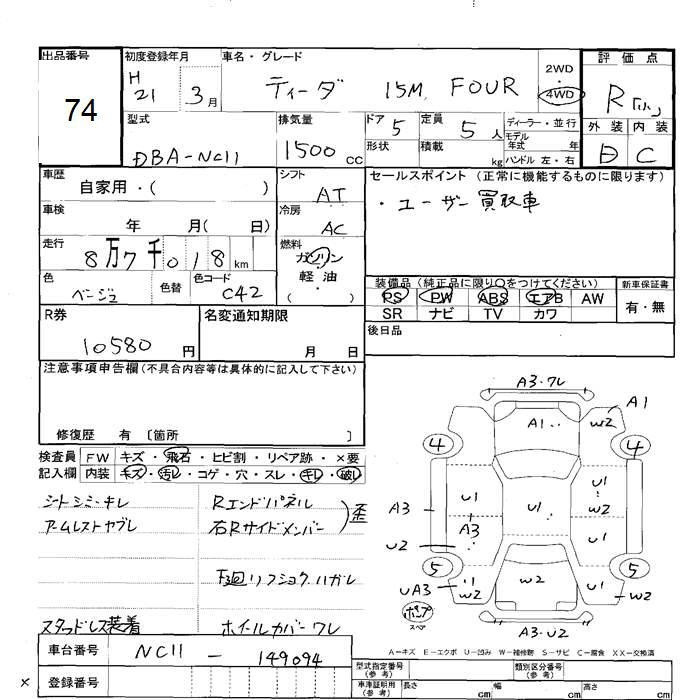 出品番号
74
初度登録年月
H
21 3月
車名・グレード
ティーダ 15M FOUR
2WD
・
4WD
評価点
R「小」
外装 内装
D C
型式
DBA-NC11
排気量
1500 cc
ドア 5
形状
定員 5 人
積載 kg
ディーラー・並行
モデル
年式 年
ハンドル 左・右
車歴
自家用・( )
シフト
AT
車検
年 月( 日)
冷房
AC
走行
8万7千018 km
燃料
ガソリン
軽油
( )
色
ベージュ
色替
色コード
C42
セールスポイント (正常に機能するものに限ります)
・ユーザー買取車
装備品 (純正品に限り○をつけてください)
PS PW ABS エアB AW
SR ナビ TV カワ
新車保証書
有・無
後日品
R券
10580 円
名変通知期限
月 日
注意事項申告欄 (不具合内容等は具体的に記入して下さい)
修復歴 有 〔箇所 〕
検査員 FW キズ・飛石・ヒビ割・リペア跡・×要
記入欄 内装 キズ・汚レ・コゲ・穴・スレ・キレ・破レ
シートシミ・キレ Rエンドパネル
アームレストヤブレ 右Rサイドメンバー 歪
下廻リフショク ハガレ
スタッドレス装着 ホイールカバーワレ
A3・ワレ
A1 A1
W2
4 4
U1 U1 U1
W2
A3 A3
U2 U1
5 5
UA3 W2 U1
W2
ポンプ
スペア
A3・U2
A=キズ E=エクボ U=凹み W=補修跡 S=サビ C=腐食 XX=交換済
車台番号 NC11 - 149094
× 登録番号
型式指定番号
(参考)
類別区分番号
(参考)
車庫証明用
(参考)
長さ cm 幅 cm 高さ cm